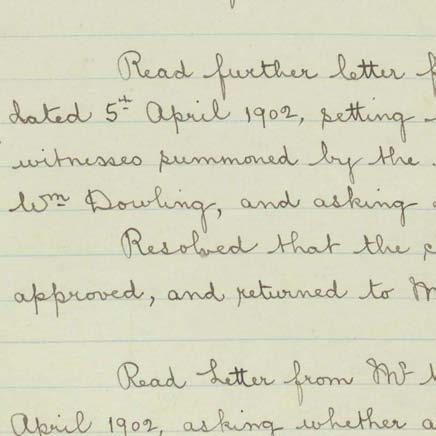 Read further letter
dated 5th April 1902, setting
witnesses summoned by the
Wm Dowling, and asking
Resolved that the
approved, and returned to
Read Letter from Mr
April 1902, asking whether a